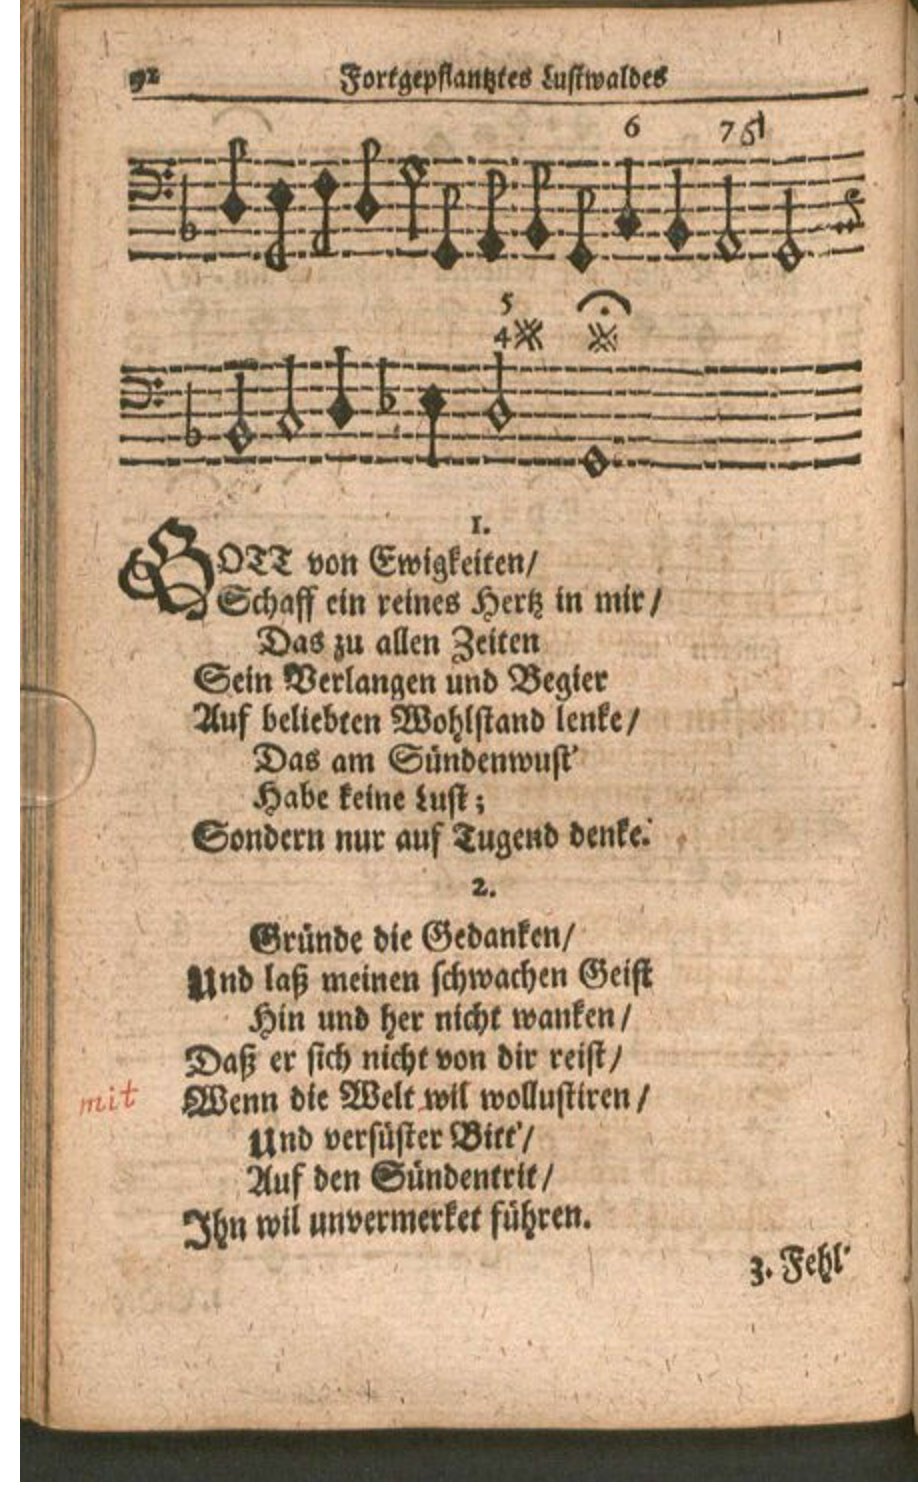 92 Fortgepflantztes Lustwaldes
6 7 6
5
4
1.
GOTT von Ewigkeiten/
Schaff ein reines Hertz in mir/
Das zu allen Zeiten
Sein Verlangen und Begier
Auf beliebten Wohlstand lenke/
Das am Sündenwust'
Habe keine Lust;
Sondern nur auf Tugend denke.
2.
Gründe die Gedanken/
Und laß meinen schwachen Geist
Hin und her nicht wanken/
Daß er sich nicht von dir reist/
mit Wenn die Welt wil wollustiren/
Und versüster Bitt'/
Auf den Sündentrit/
Ihn wil unvermerket führen.
3. Fehl'